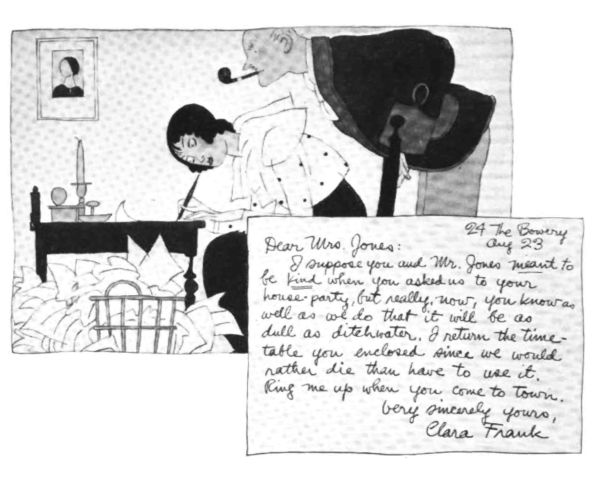 24 The Bowery
Aug 23
Dear Mrs. Jones:
I suppose you and Mr. Jones meant to
be kind when you asked us to your
house-party, but really, now, you know as
well as we do that it will be as
dull as ditchwater. I return the time-
table you enclosed since we would
rather die than have to use it.
Ring me up when you come to town.
Very sincerely yours,
Clara Frank